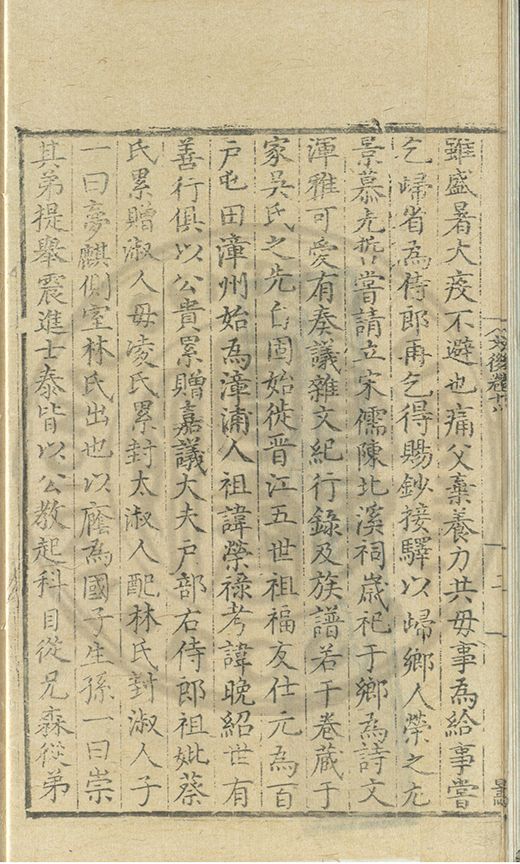 雖盛暑大疫不避也痛父棄養力共母事為給事嘗
乞歸省為侍郎再乞得賜鈔接驛以歸鄉人榮之尤
景慕先哲嘗請立宋儒陳北溪祠歲祀于鄉為詩文
渾雅可愛有奏議雜文紀行錄及族譜若干卷蔵于
家吳氏之先自固始徙晋江五世祖福友仕元為百
户屯田漳州始為漳浦人祖諱榮祿考諱晚紹世有
善行俱以公貴累贈嘉議大夫户部右侍郎祖妣蔡
氏累贈淑人毋凌氏累封太淑人配林氏封淑人子
一曰夢麒側室林氏出也以廕為國子生孫一曰崇
其弟提舉震進士泰皆以公教起科目從兄森從弟
文後卷十六
二